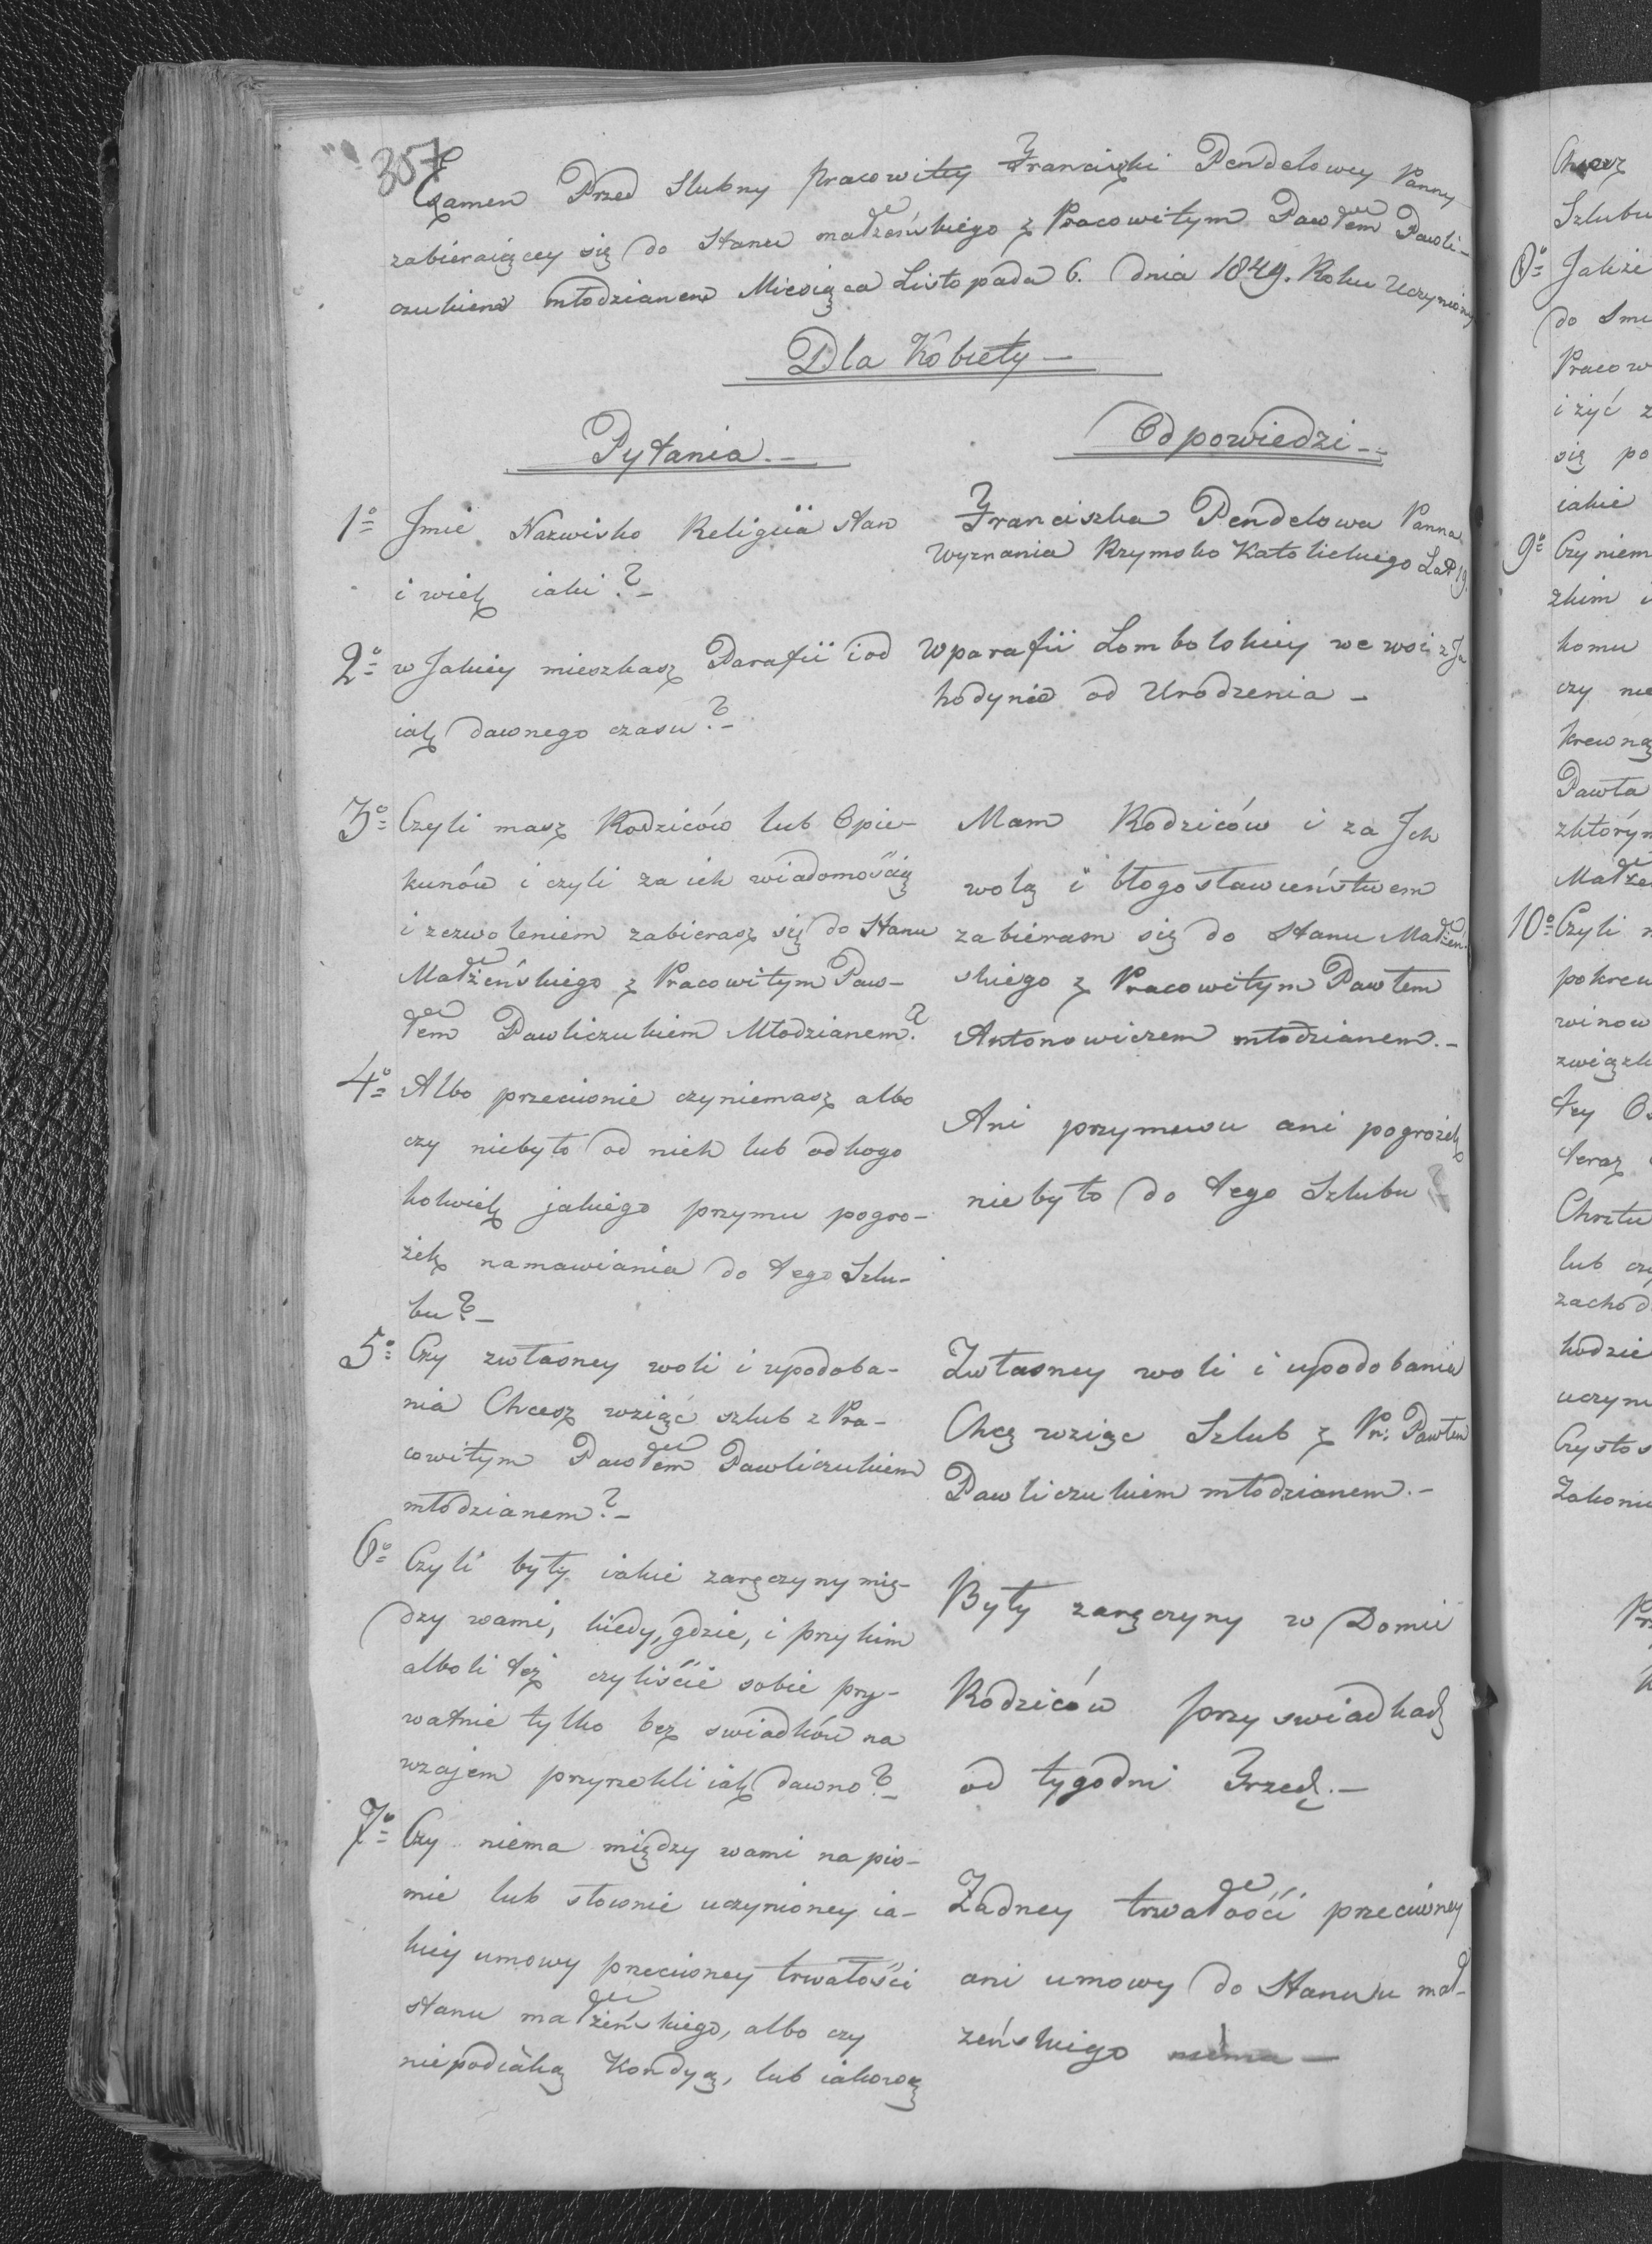 357
Exzamen Przed Slubny pracowitey Franciszki Pendelowey Panny
zabieraiącey się do Stanu małżeńskiego z Pracowitym Pawłem Pawli-
czukiem młodzianem Miesiąca Listopada 6. dnia 1849. Roku Uczyniony
Dla Kobiety –
Pytania. –
1o Jmie Nazwisko Religiia stan
i wiek iaki? –
2o w Jakiey mieszkasz Parafii i od
iak dawnego czasu? –
3o Czyli masz Rodziców lub Opie-
kunów i czyli za ich wiadomością
i zezwoleniem zabierasz się do Stanu
Małżeńskiego z Pracowitym Paw-
łem Pawliczukiem Młodzianem?
4o Albo przeciwnie czyniemasz albo
czy niebyło od nich lub odkogo
kolwiek jakiego przymu pogro-
żek namawiania do tego Szlu-
bu? –
5o Czy zwłasney woli i upodoba-
nia Chcesz wziąć szlub z Pra-
cowitym Pawłem Pawliczukiem
młodzianem? –
6o Czyli były iakie zaręczyny mię-
dzy wami, kiedy, gdzie, i przykim
alboli też czyliście sobie pry-
watnie tylko bez swiadków na
wzajem przyrzekli iak dawno? –
7o Czy niema między wami na piś-
mie lub słownie uczynioney ia-
kiey umowy przeciwney trwałości
stanu małżeńskiego, albo czy
niepodiaką Kondyą, lub iakową
Odpowiedzi –
Franciszka Pendelowa Panna
Wyznania Rzymsko Katolickiego Lat 19.
W parafii Lombolokiey we wsi z Ja
hodynie od Urodzenia –
Mam Rodziców i za Jch
wolą i błogosławieństwem
zabieram się do Stanu Małżeń-
skiego z Pracowitym Pawłem
Antonowiczem młodzianem. –
Ani przymusu ani pogrożek
niebyło do tego Szlubu –
Zwłasney woli i upodobania
Chcę wziąc Szlub z Pr: Pawłem
Pawliczukiem młodzianem. –
Były zaręczyny w Domie
Rodziców przy swiadkach
od tygodni Trzech. –
Żadney trwałości przeciwney
ani umowy do Stanuu mał-
żeńskiego niema –
Chcesz
Szlubu
8o Jakie
do Smi
Pracow
i żyć z
się po
iakie
9o Czy niem
zkim
komu
czy nie
krewną
Pawła
zktórym
Małże
10o Czyli n
pokrew
winow
związk
tey
teraz
Chrztu
lub czy
zachod
kodzie
uczyni
Czystos
Zakonu